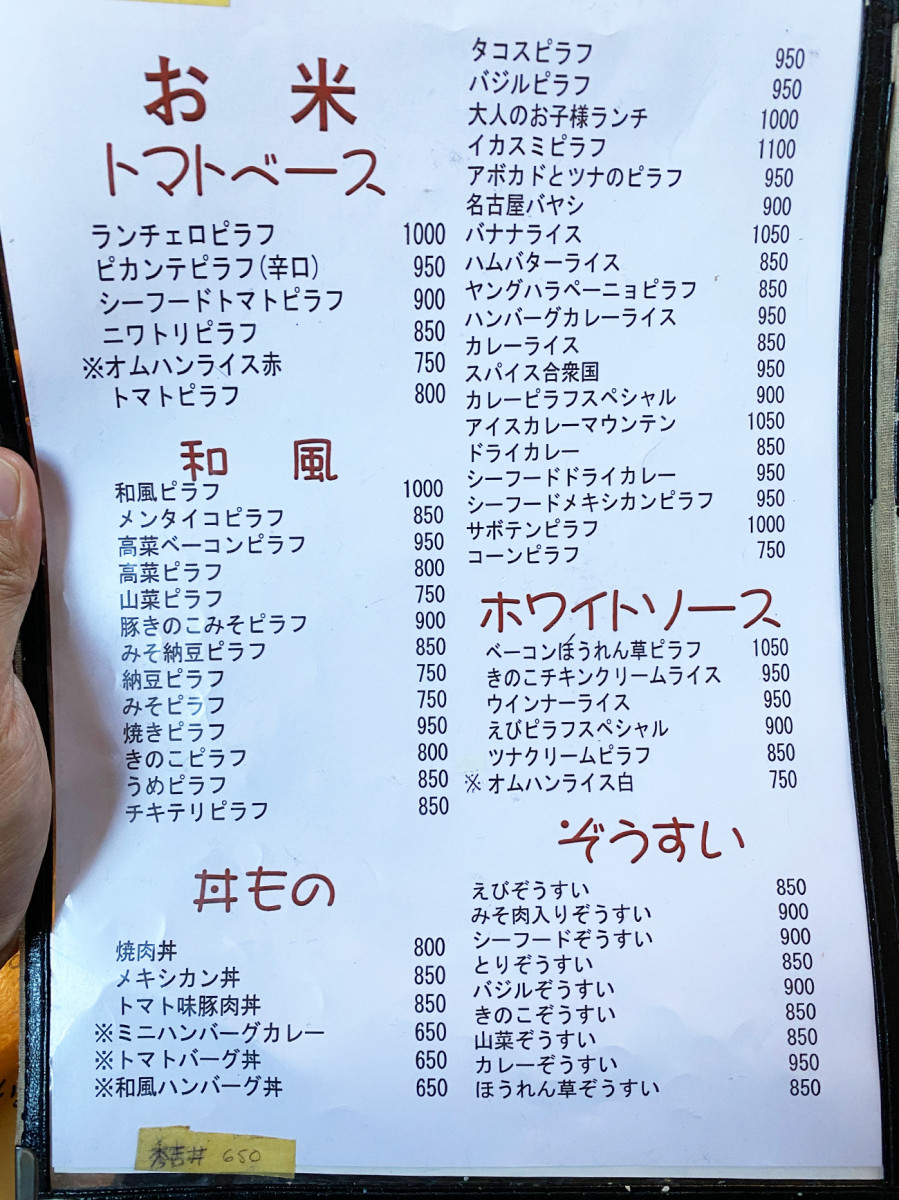 お 米
トマトベース
ランチェロピラフ 1000
ピカンテピラフ(辛口) 950
シーフードトマトピラフ 900
ニワトリピラフ 850
※オムハンライス赤 750
トマトピラフ 800
和 風
和風ピラフ 1000
メンタイコピラフ 850
高菜ベーコンピラフ 950
高菜ピラフ 800
山菜ピラフ 750
豚きのこみそピラフ 900
みそ納豆ピラフ 850
納豆ピラフ 750
みそピラフ 750
焼きピラフ 950
きのこピラフ 800
うめピラフ 850
チキテリピラフ 850
丼もの
焼肉丼 800
メキシカン丼 850
トマト味豚肉丼 850
※ミニハンバーグカレー 650
※トマトバーグ丼 650
※和風ハンバーグ丼 650
秀吉丼 650
タコスピラフ 950
バジルピラフ 950
大人のお子様ランチ 1000
イカスミピラフ 1100
アボカドとツナのピラフ 950
名古屋バヤシ 900
バナナライス 1050
ハムバターライス 850
ヤングハラペーニョピラフ 850
ハンバーグカレーライス 950
カレーライス 850
スパイス合衆国 950
カレーピラフスペシャル 900
アイスカレーマウンテン 1050
ドライカレー 850
シーフードドライカレー 950
シーフードメキシカンピラフ 950
サボテンピラフ 1000
コーンピラフ 750
ホワイトソース
ベーコンほうれん草ピラフ 1050
きのこチキンクリームライス 950
ウインナーライス 950
えびピラフスペシャル 900
ツナクリームピラフ 850
※ オムハンライス白 750
・ぞうすい
えびぞうすい 850
みそ肉入りぞうすい 900
シーフードぞうすい 900
とりぞうすい 850
バジルぞうすい 900
きのこぞうすい 850
山菜ぞうすい 850
カレーぞうすい 950
ほうれん草ぞうすい 850